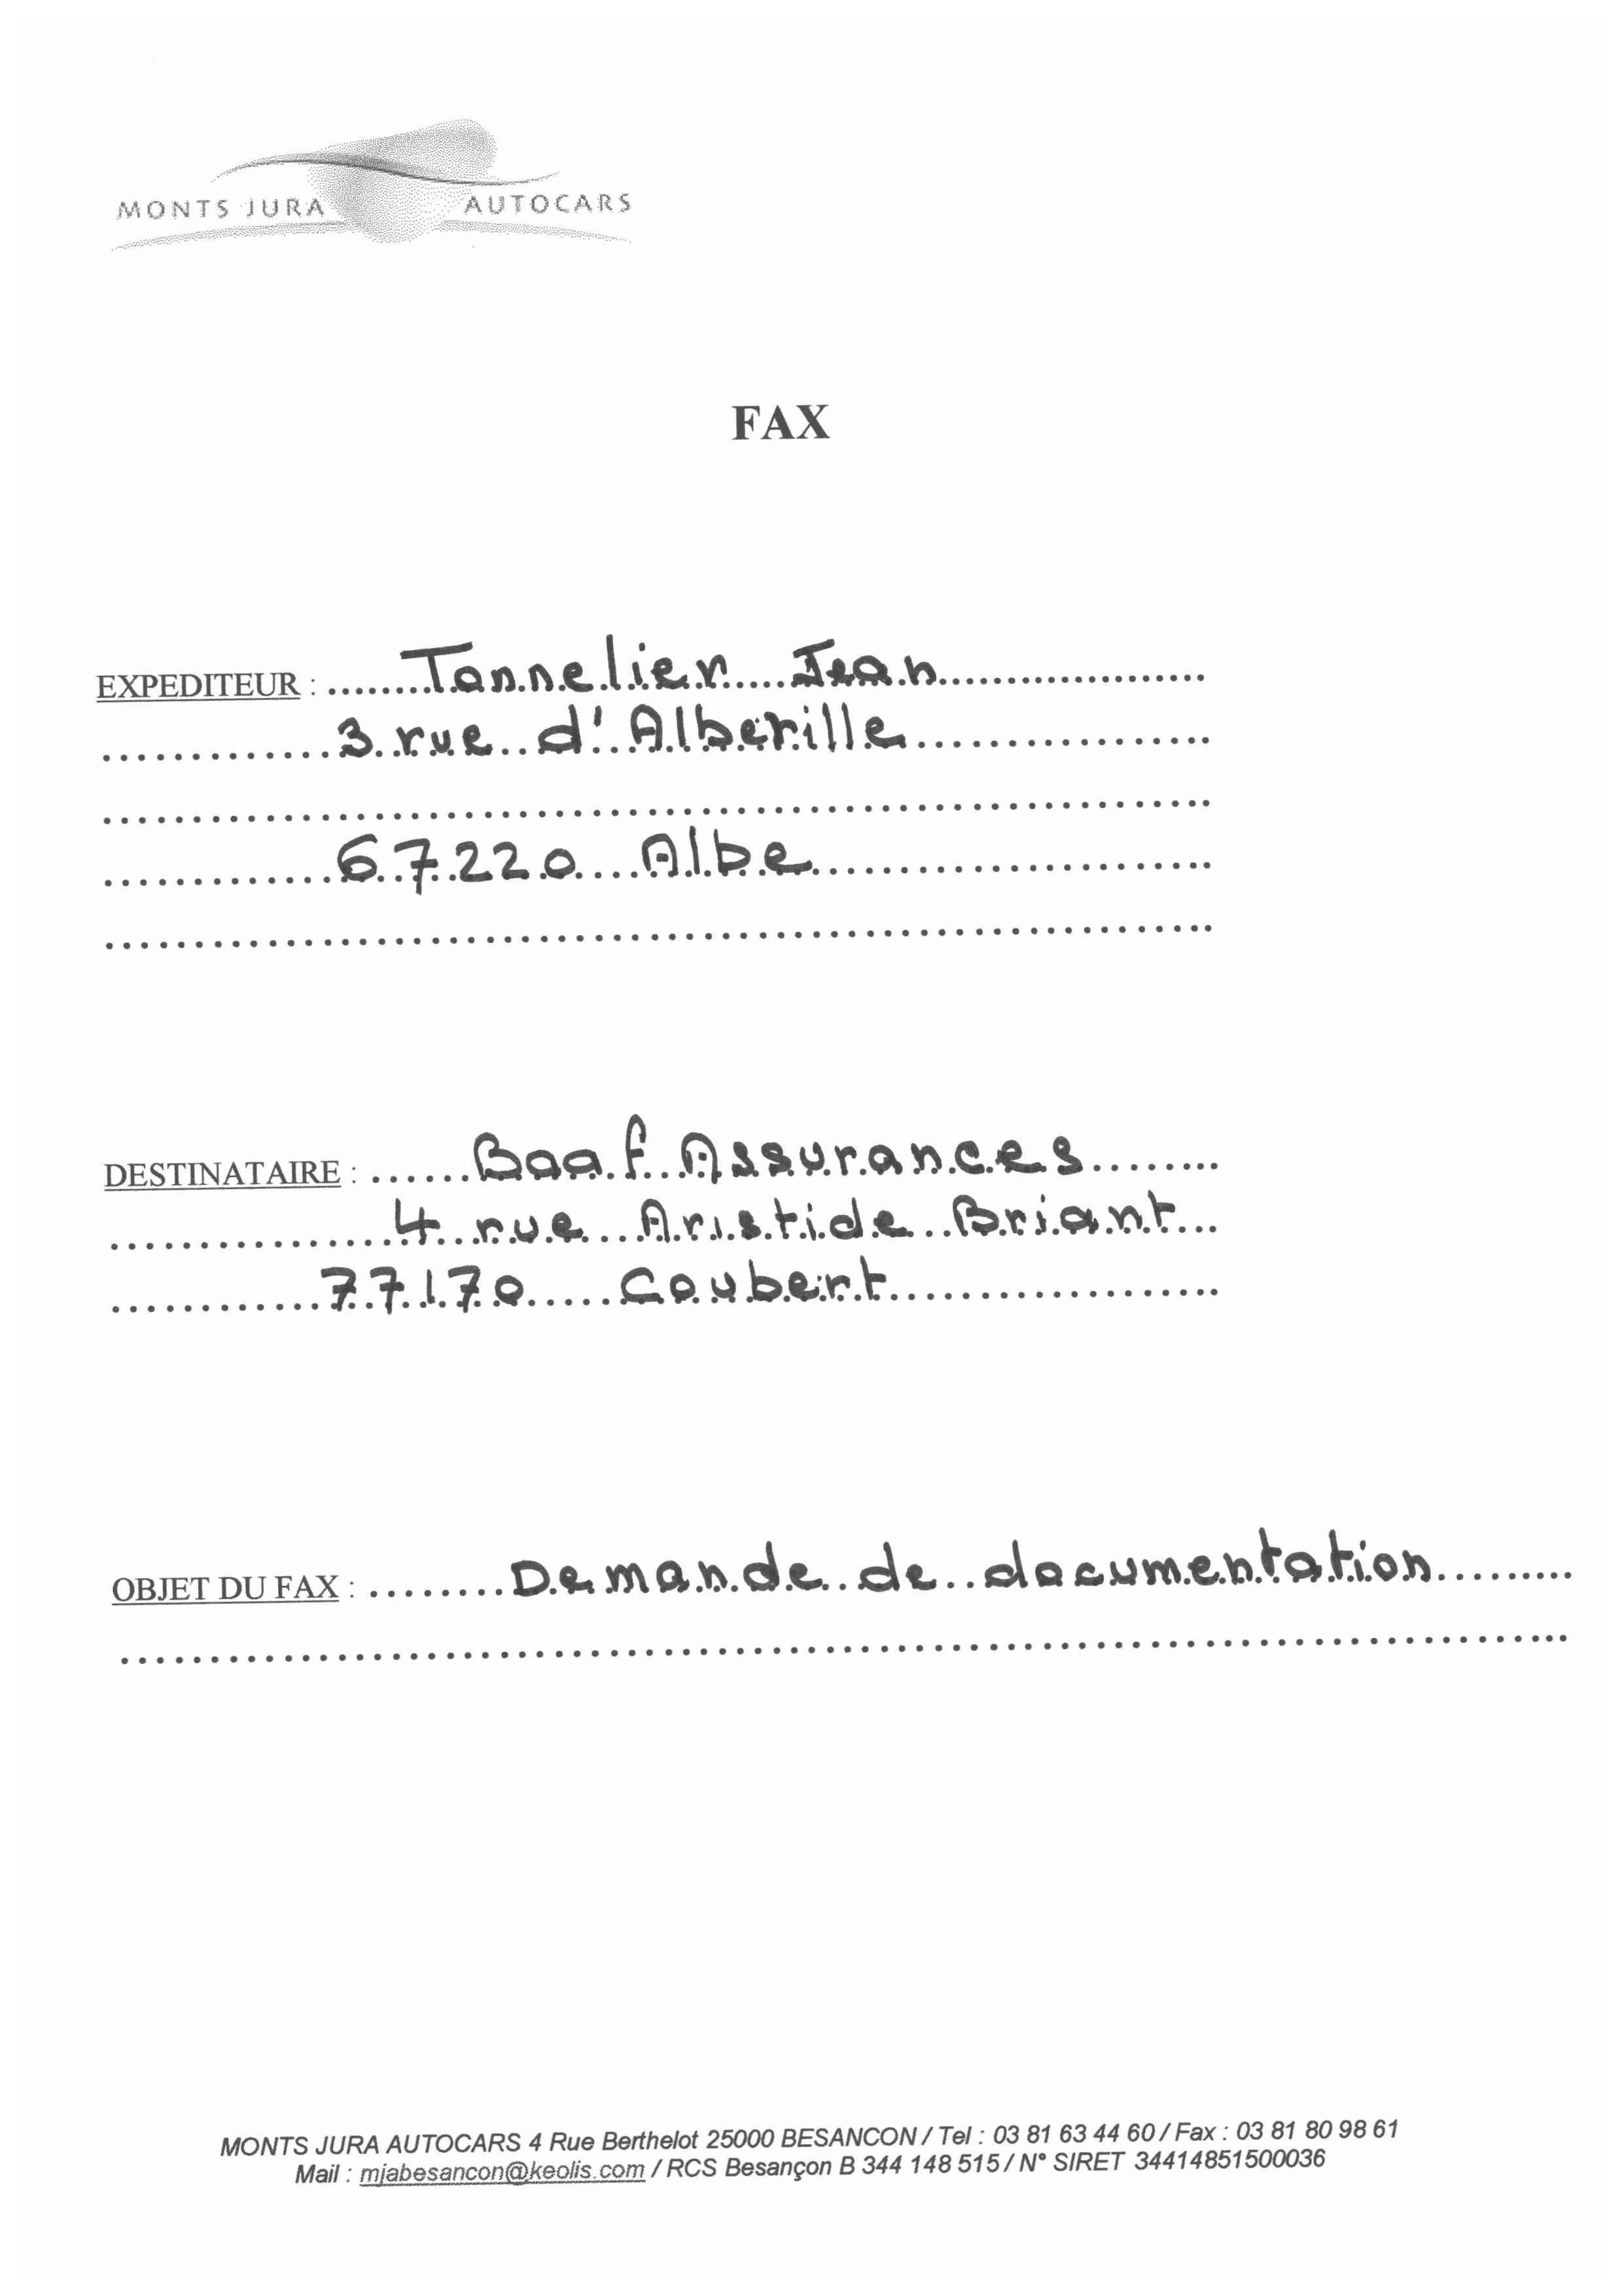 MONTS JURA AUTOCARS
FAX
EXPEDITEUR : Tonnelier Jean
3 rue d'Alberille
67220 Albe
DESTINATAIRE : Baaf Assurances
4 rue Aristide Briant
77170 Coubert
OBJET DU FAX : Demande de documentation
MONTS JURA AUTOCARS 4 Rue Berthelot 25000 BESANCON / Tel : 03 81 63 44 60 / Fax : 03 81 80 98 61
Mail : mjabesancon@keolis.com / RCS Besançon B 344 148 515 / N° SIRET 34414851500036